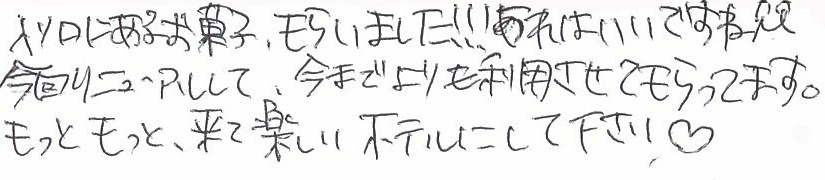 入り口にあるお菓子、もらいました!!!あれはいいですねぇ
今回リニューアルして、今までよりも利用させてもらってます。
もっともっと、来て楽しいホテルにして下さい♡